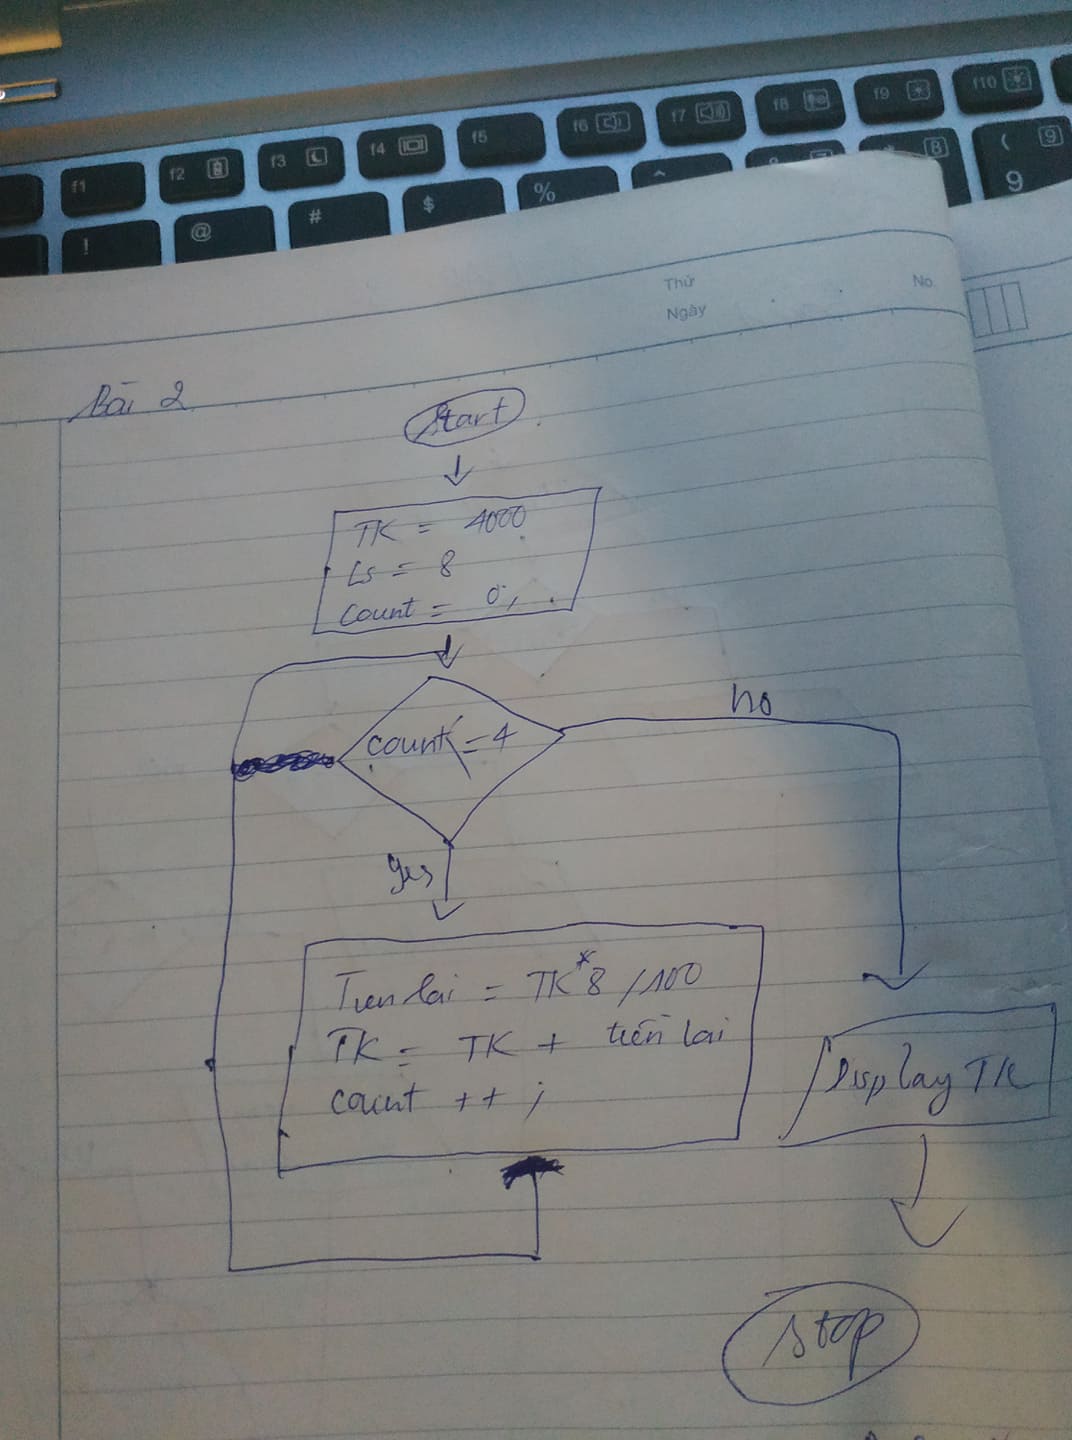 f1 f2 f3 f4 f5 f6 f7 f8 f9 f10
! @ # $ % ^ * 8 ( 9
9
Thứ
No.
Ngày
Bài 2
Start
TK = 4000
Ls = 8
Count = 0;
count <= 4
no
yes
Tien lai = TK * 8 / 100
TK = TK + tiền lai
count ++ ;
Display TK
stop